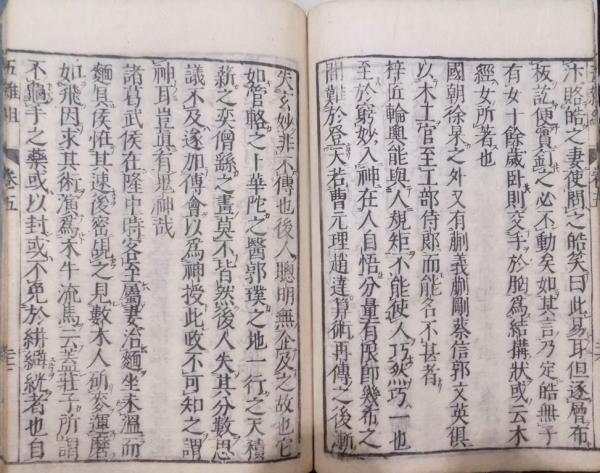 汴賂皓之妻使問之皓笑曰此易耳但逐層布
板訖便實釘之必不動矣如其言乃定皓無子
有女十餘歲臥則交手於胸爲結搆狀或云木
經女所著也
國朝徐杲之外又有蒯義蒯剛蔡信郭文英俱
以木工官至工部侍郎而能名不甚著
梓匠輪輿能與人規矩不能使人巧然巧一也
至於窮妙入神在人自悟分量有限即幾希之
間難於登天若曹元理趙達算術再傳之後漸
失玄妙非不傳也後人聰明無企及之故也它
如管輅之卜華陀之醫郭璞之地一行之天積
薪之奕僧繇之畫莫不皆然後人失其分數思
議不及遂加傅會以爲神授此政不可知之謂
神耳豈眞有鬼神哉
諸葛武侯在隆中時客至屬妻治麵坐未溫而
麵具侯怪其速後密覘之見數木人斫麥運磨
如飛因求其術演爲木牛流馬云蓋莊子所謂
不龜手之藥或以封或不免於絣繲絖者也自
五雜俎 卷五